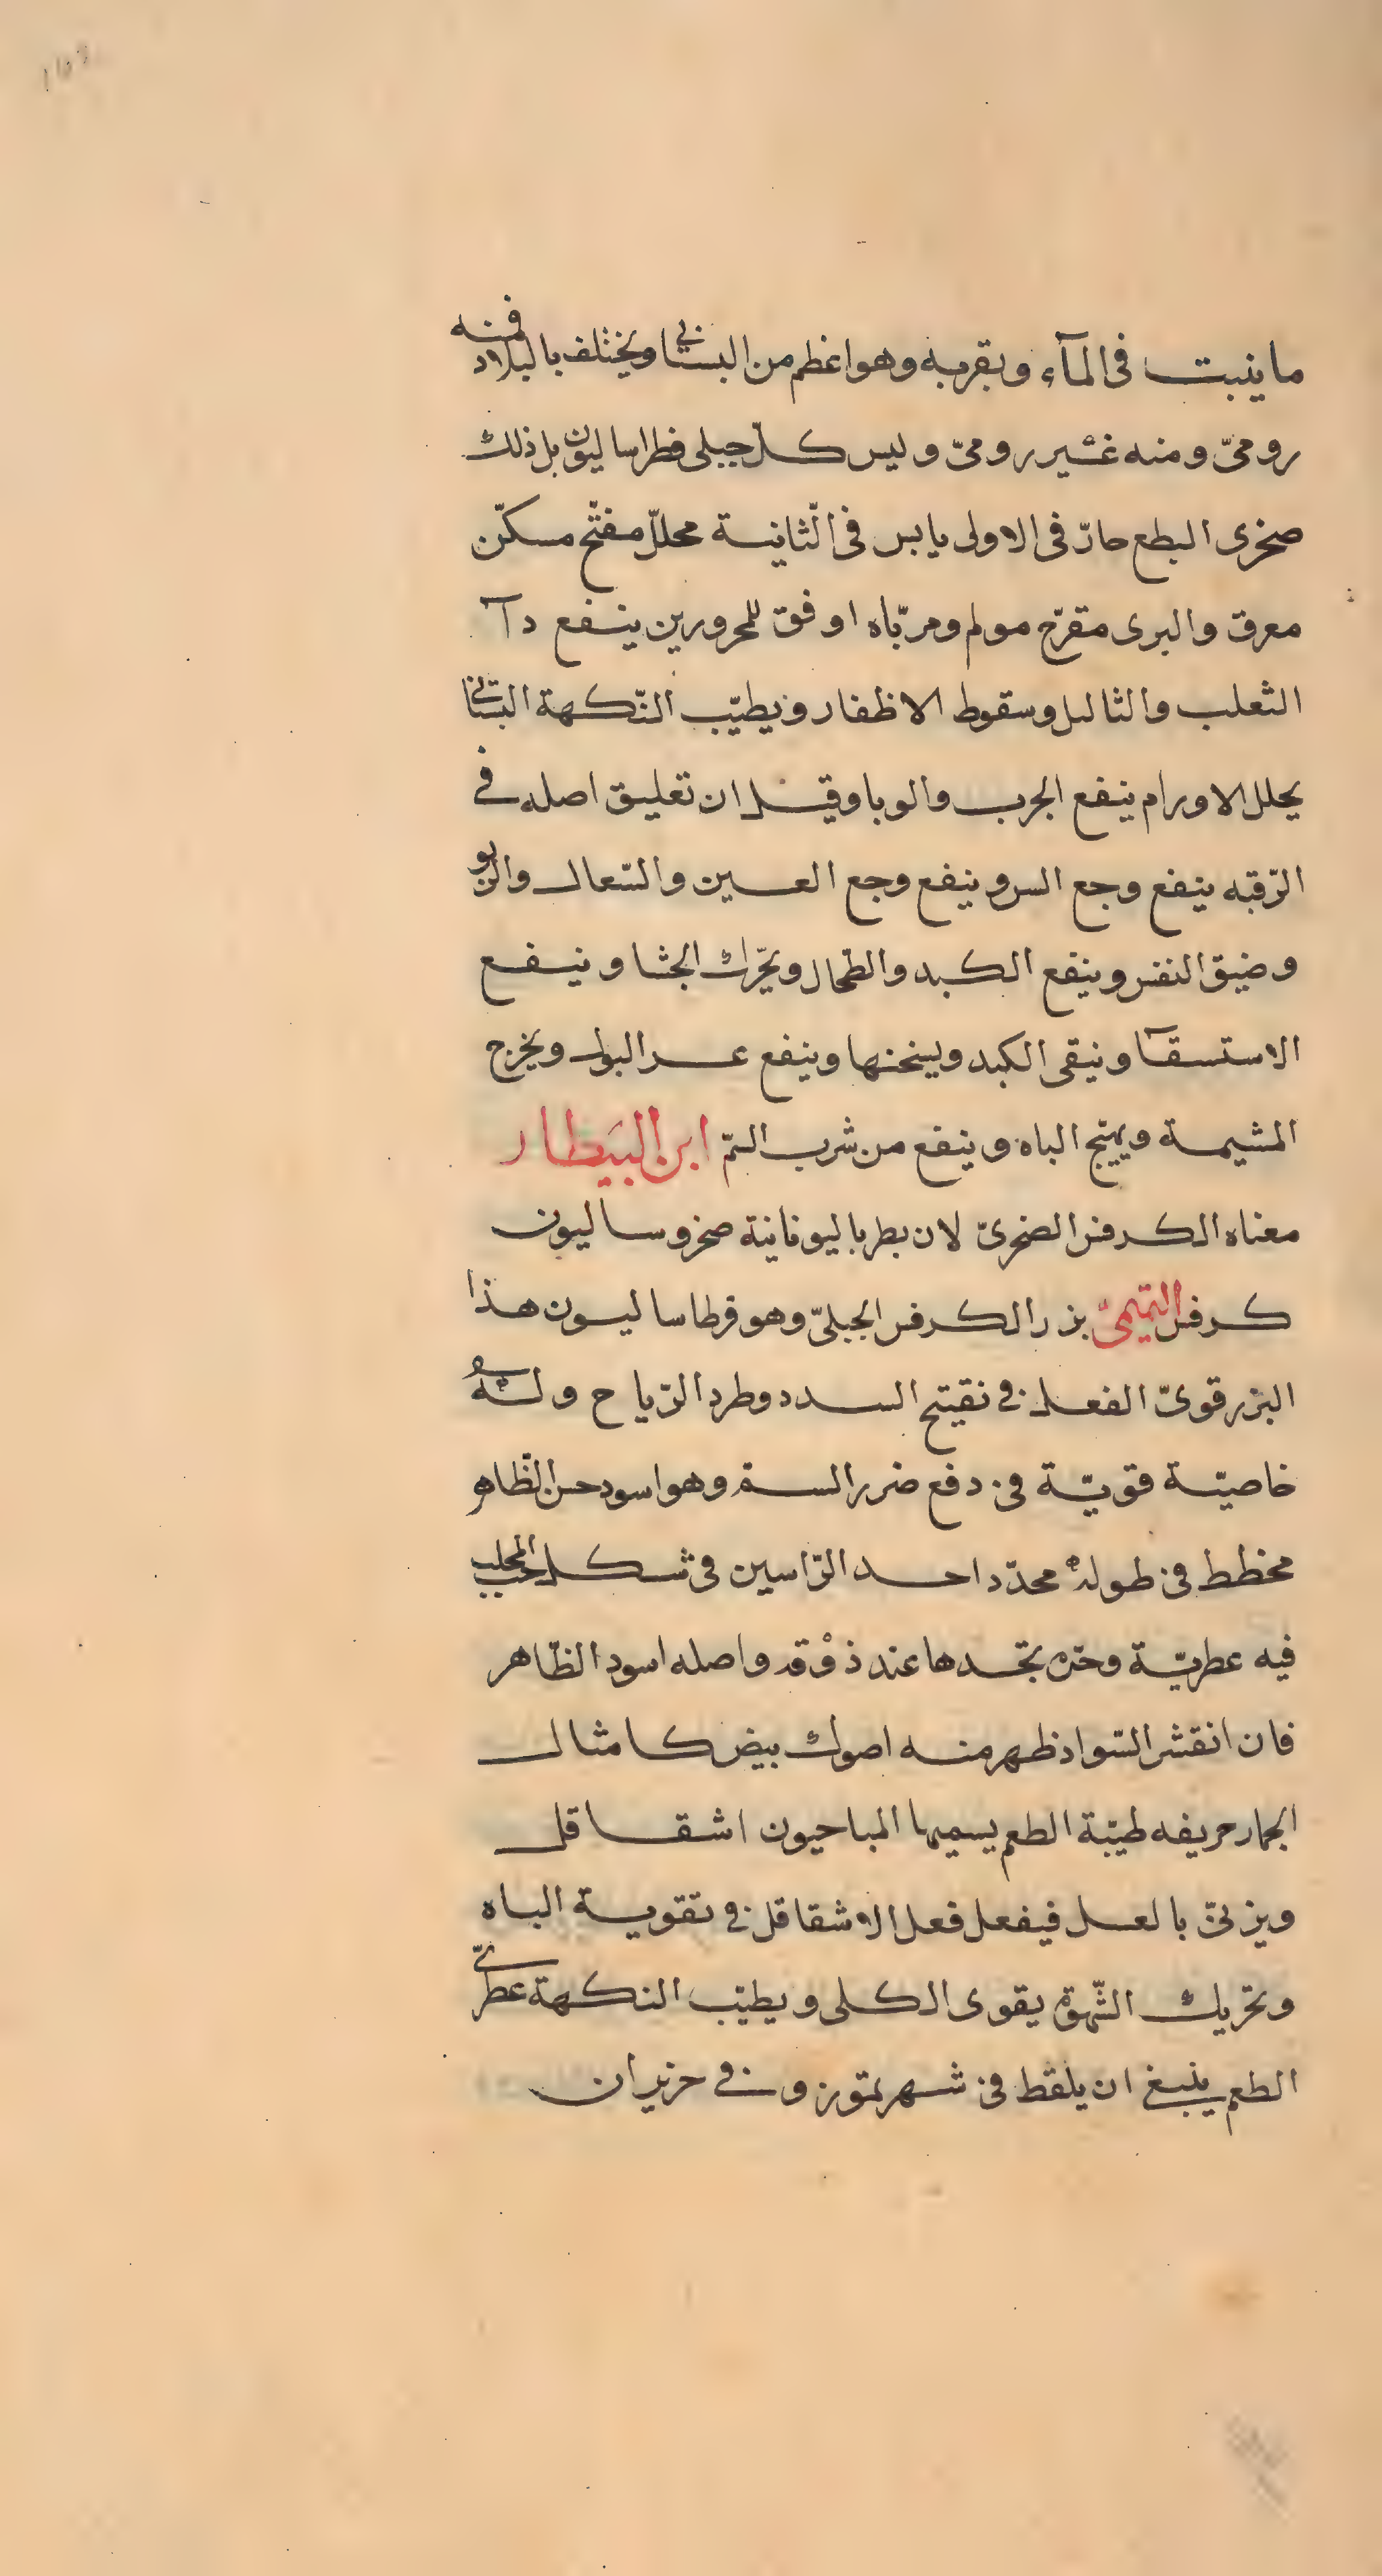 ما ينبت فى المآء وبقربه وهو اعظم من البستانى ويختلف بالبلاد فمنه
رومىّ ومنه غير رومىّ وليس كلّ جبلى فطراساليون بل ذلك
صخرى الطبع حارّ فى الاولى يابس فى الثّانية محللّ مفتّح مسكّن
معرق والبرى مقرّح مولم ومربّاه اوفق للمحرورين ينفع دآ
الثعلب والثاليل وسقوط الاظفار ويطيّب النّكهة البستانى
يحلل الاورام ينفع الجرب والوبا وقيل ان تعليق اصله فى
الرّقبه ينفع وجع السن وينفع وجع العين والسّعال والربو
وضيق النفس وينفع الكبد والطّحال ويحّرك الجشا وينفع
الاستسقآ وينقى الكبد ويسخنها وينفع عسر البول ويخرج
المشيمة ويهيّج الباه وينفع من شرب السّمّ ابن البَيطار
معناه الكرفس الصخرىّ لان بطر باليونانية صخر وساليون
كرفس التّميمىّ بزر الكرفس الجبلىّ وهو قرطاساليون هذا
البزر قوىّ الفعل فى تفتيح السدد وطرد الرّياح ولهُ
خاصيّة قويّة فى دفع ضرر السم وهو اسود حسن الظّاهر
مخطط فى طوله محدّد احد الرّاسين فى شكل حب المحلب
فيه عطريّة وحدّه تجدها عند ذوْقه واصله اسود الظّاهر
فان انقشر السّواد ظهر منه اصول بيض كامثال
الجمار حريفه طيّبة الطعم يسميها المباحيون اشقاقل
ويربىّ بالعسل فيفعل فعل الاشقاقل فى تقوية الباه
وتحريك الشّهوة يقوى الكلى ويطيّب النكهة عطرىّ
الطعم ينبغى ان يلقط فى شهر تموز وفى حزيران